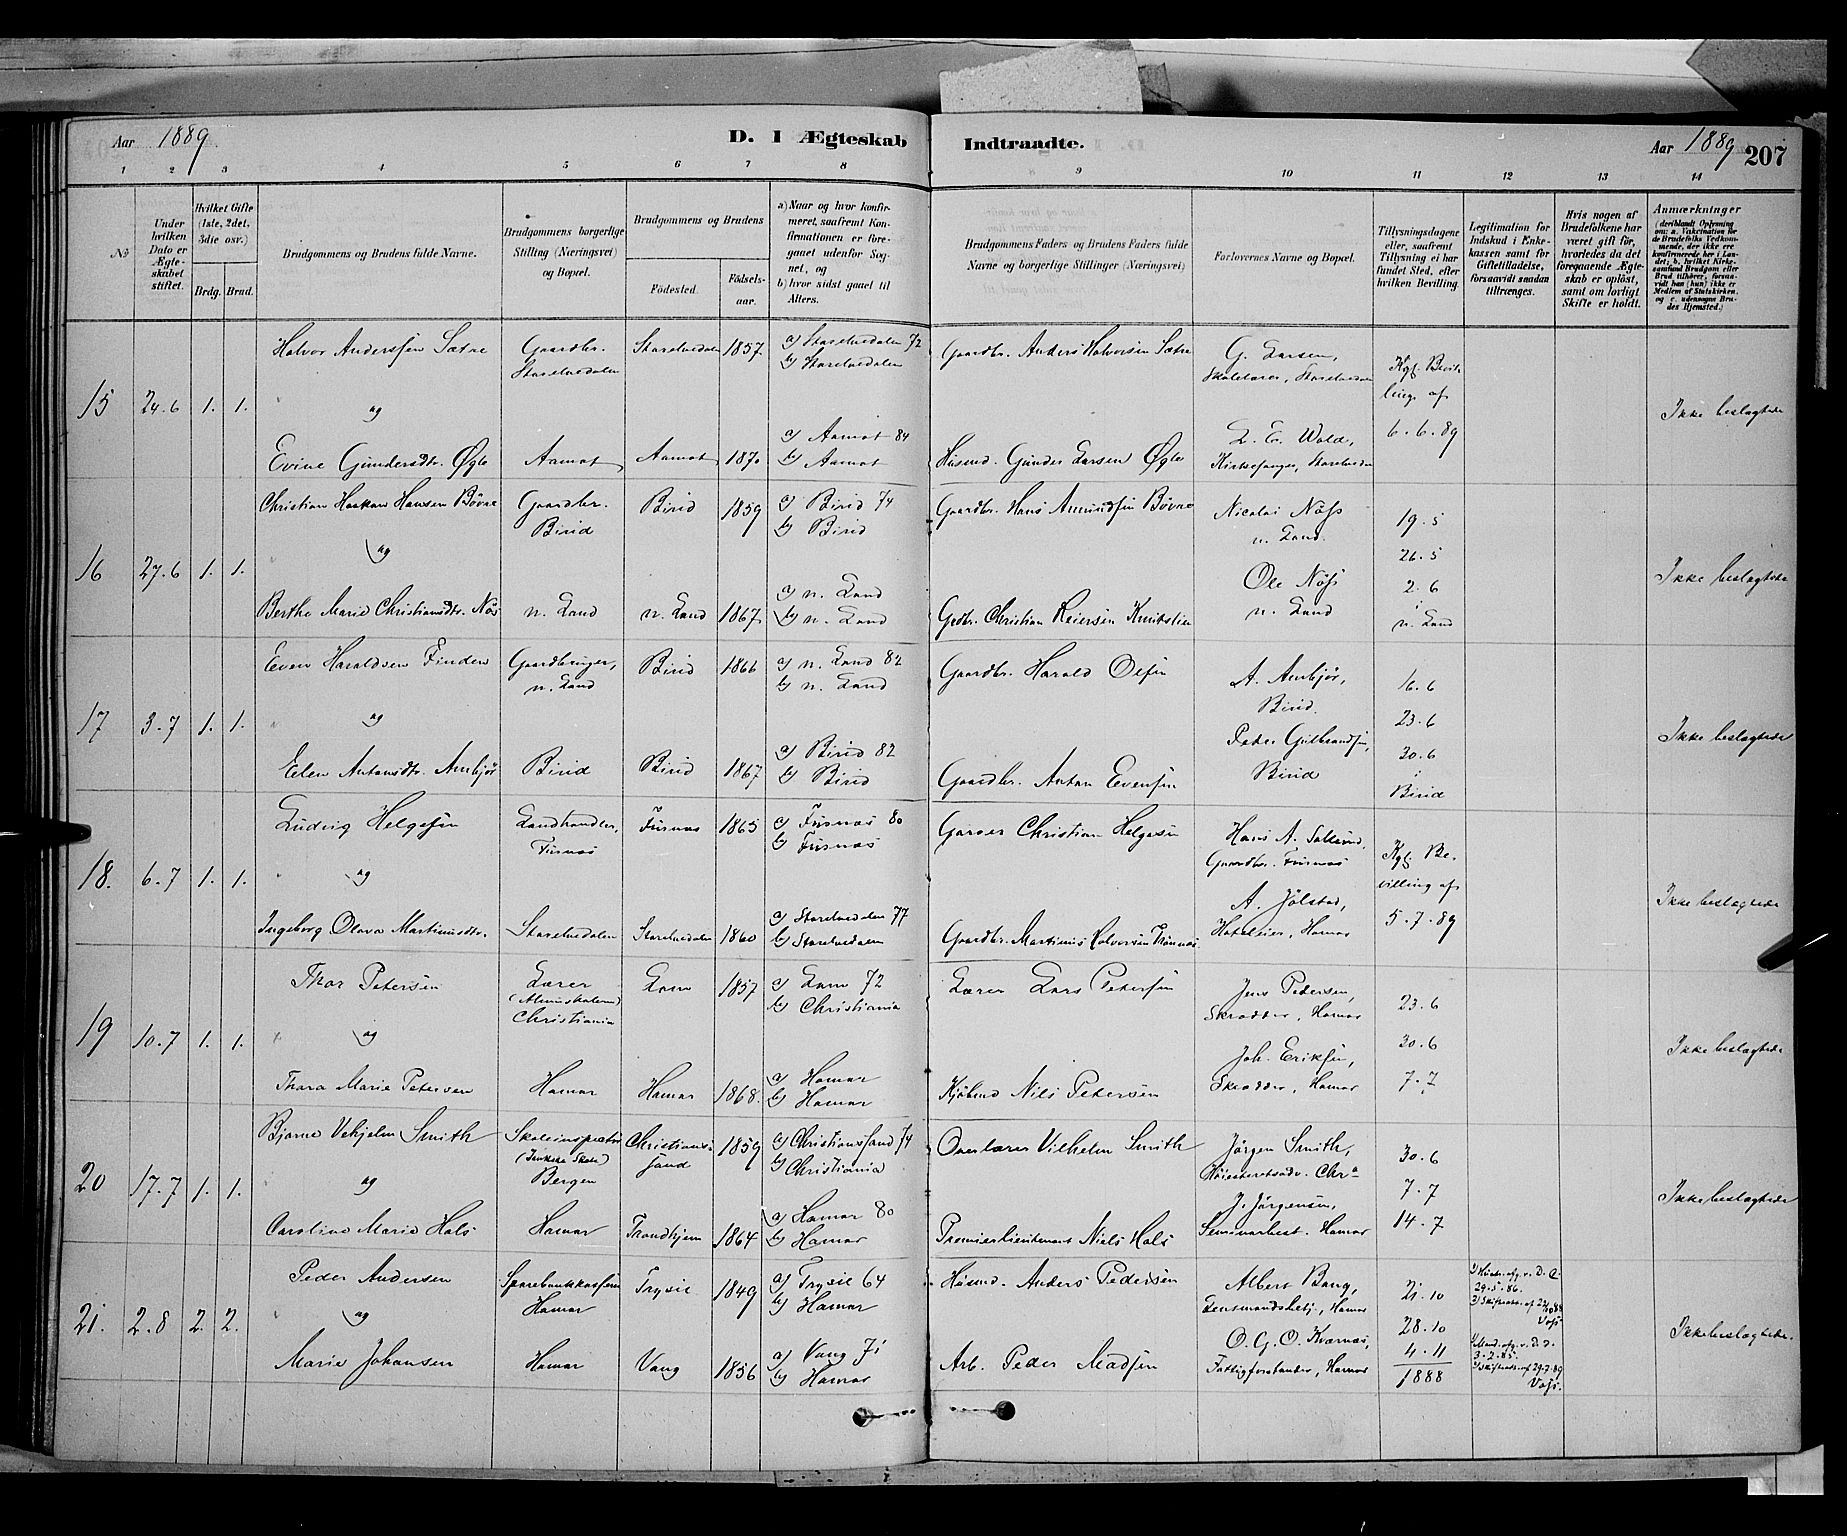 Aar 1889.
D. I Ægteskab
Indtraadte.
Aar 1889
207
1 2 3 4 5 6 7 8
8 9 10 11 12 13 14
No
Under hvilken Dato er Ægteskabet stiftet.
Hvilket Gifte (1ste, 2det, 3die osv.).
Brdg. Brud.
Brudgommens og Brudens fulde Navne.
Brudgommens borgerlige Stilling (Næringsvei) og Bopæl.
Brudgommens og Brudens
Fødested.
Fødselsaar.
a) Naar og hvor konfirmeret, saafremt Konfirmationen er foregaaet udenfor Sognet, og
b) hvor sidst gaaet til Alters.
Brudgommens Faders og Brudens Faders fulde Navne og borgerlige Stillinger (Næringsvei)
Forlovernes Navne og Bopæl.
Tillysningsdagene eller, saafremt Tillysning ei har fundet Sted, efter hvilken Bevilling.
Legitimation for Indskud i Enkekassen samt for Giftetilladelse, forsaavidt saadan tiltrænges.
Hvis nogen af Brudefolkene har været gift før, hvorledes da det foregaaende Ægteskab er opløst, samt om lovligt Skifte er holdt.
Anmærkninger
15 24.6 1. 1.
Halvor Anderssen Sætre
Gaardbr. Storelvedalen
Storelvedalen 1857.
a) Storelvedalen 72
b) Storelvedalen
Gaardbr. Anders Halvorsen Sætre
G. Larsen,
Skolelærer, Storelvedalen
Kgl. Bevillings af
6.6.89
Ikke beslægtede
og
Evine Gundersdtr. Øgle
Aamot
Aamot 1870
a) Aamot 84
b) Aamot
Husmd. Gunder Larsen Øgle
L. E. Wold,
Kirkesanger, Storelvedalen
16 27.6 1. 1.
Christian Haakon Hansen Bøvre
Gaardbr.
Birid
Birid 1859
a) Birid 74
b) Birid
Gaardbr. Hans Amundsen Bøvre
Nicolai Nøss
n. Land.
19.5
26.5
2.6
i
n. Land
Ikke beslægtede
og
Berthe Marie Christiansdtr. Nøs
n. Land
n. Land 1867.
a) n. Land
b) n. Land
Grdbr. Christian Reiersen
Ole Nøss
n. Land
17 3.7 1. 1.
Even Haraldsen Finden
Gaardbruger,
n. Land
Birid 1866
a) n. Land 82
b) n. Land
Gaardbr. Harald Olsen
A. Ambjør,
Birid.
16.6
23.6
30.6
i
Birid
Ikke beslægtede
og
Elen Antonsdtr. Ambjør
Birid
Birid 1867
a) Birid 82
b) Birid
Gaardbr. Anton Evensen
Peder Gulbrandsen,
Birid
18. 6.7 1. 1.
Ludvig Helgesen
Landhandler,
Furnæs
Furnæs 1865
a) Furnæs 80
b) Furnæs
Garver Christian Helgesen
Hans A.
Gaardbr. Furnæs
Kgl. Bevilling af
5.7.89
Ikke beslægtede
og
Ingeborg Olava Martinusdtr.
Storelvedalen
Storelvedalen 1860
a) Storelvedalen 77
b) Storelvedalen
Gaardbr. Martinus Halvorsen Trønnæs
A. Jølstad,
Hoteleier, Hamar
19 10.7 1. 1.
Thor Petersen
Lærer
Christiania
Lom 1857
a) Lom 72
b) Christiania
Lærer Lars Petersen
Jens Pedersen,
Skrædder, Hamar
23.6
30.6
7.7
Ikke beslægtede
og
Thora Marie Petersen
Hamar
Hamar 1868.
a) Hamar
b) Hamar
Kjøbmd Nils Petersen
Joh. Eriksen,
Skrædder, Hamar
20 17.7 1. 1.
Bjarne Vilhjelm Smith
Skoleinspectør
Bergen
Christianssand 1859
a) Christianssand 74
b) Christiania
Overlærer Vilhelm Smith
Jørgen Smith,
Høiesteretsadv. Chra
30.6
7.7
14.7
Ikke beslægtede
og
Caroline Marie Hals
Hamar
Trondhjem 1864
a) Hamar 80
b) Hamar
Premierlieutenant Niels Hals
J. Jørgensen,
Seminarbest. Hamar
21. 2.8 2. 2.
Peder Andersen
Sparebankkasserer
Hamar
Trysil 1849
a) Trysil 64
b) Hamar
Husmd. Anders Pedersen
Albert Bang,
Lensmandsbetj., Hamar
21.10
28.10
4.11
1888
1) Hustr. afg. v. D. d.
29.5.86.
Voss
Ikke beslægtede.
og
Marie Johansen
Hamar
Vang 1856
a) Vang 71
b) Hamar
Arb. Peder Madsen
O. G. O. Kværnæs,
Fattigforstander, Hamar
1) Mand. afg. v. D. d.
3.2.85.
2) Skifteatt. af 29.7.89
Voss.